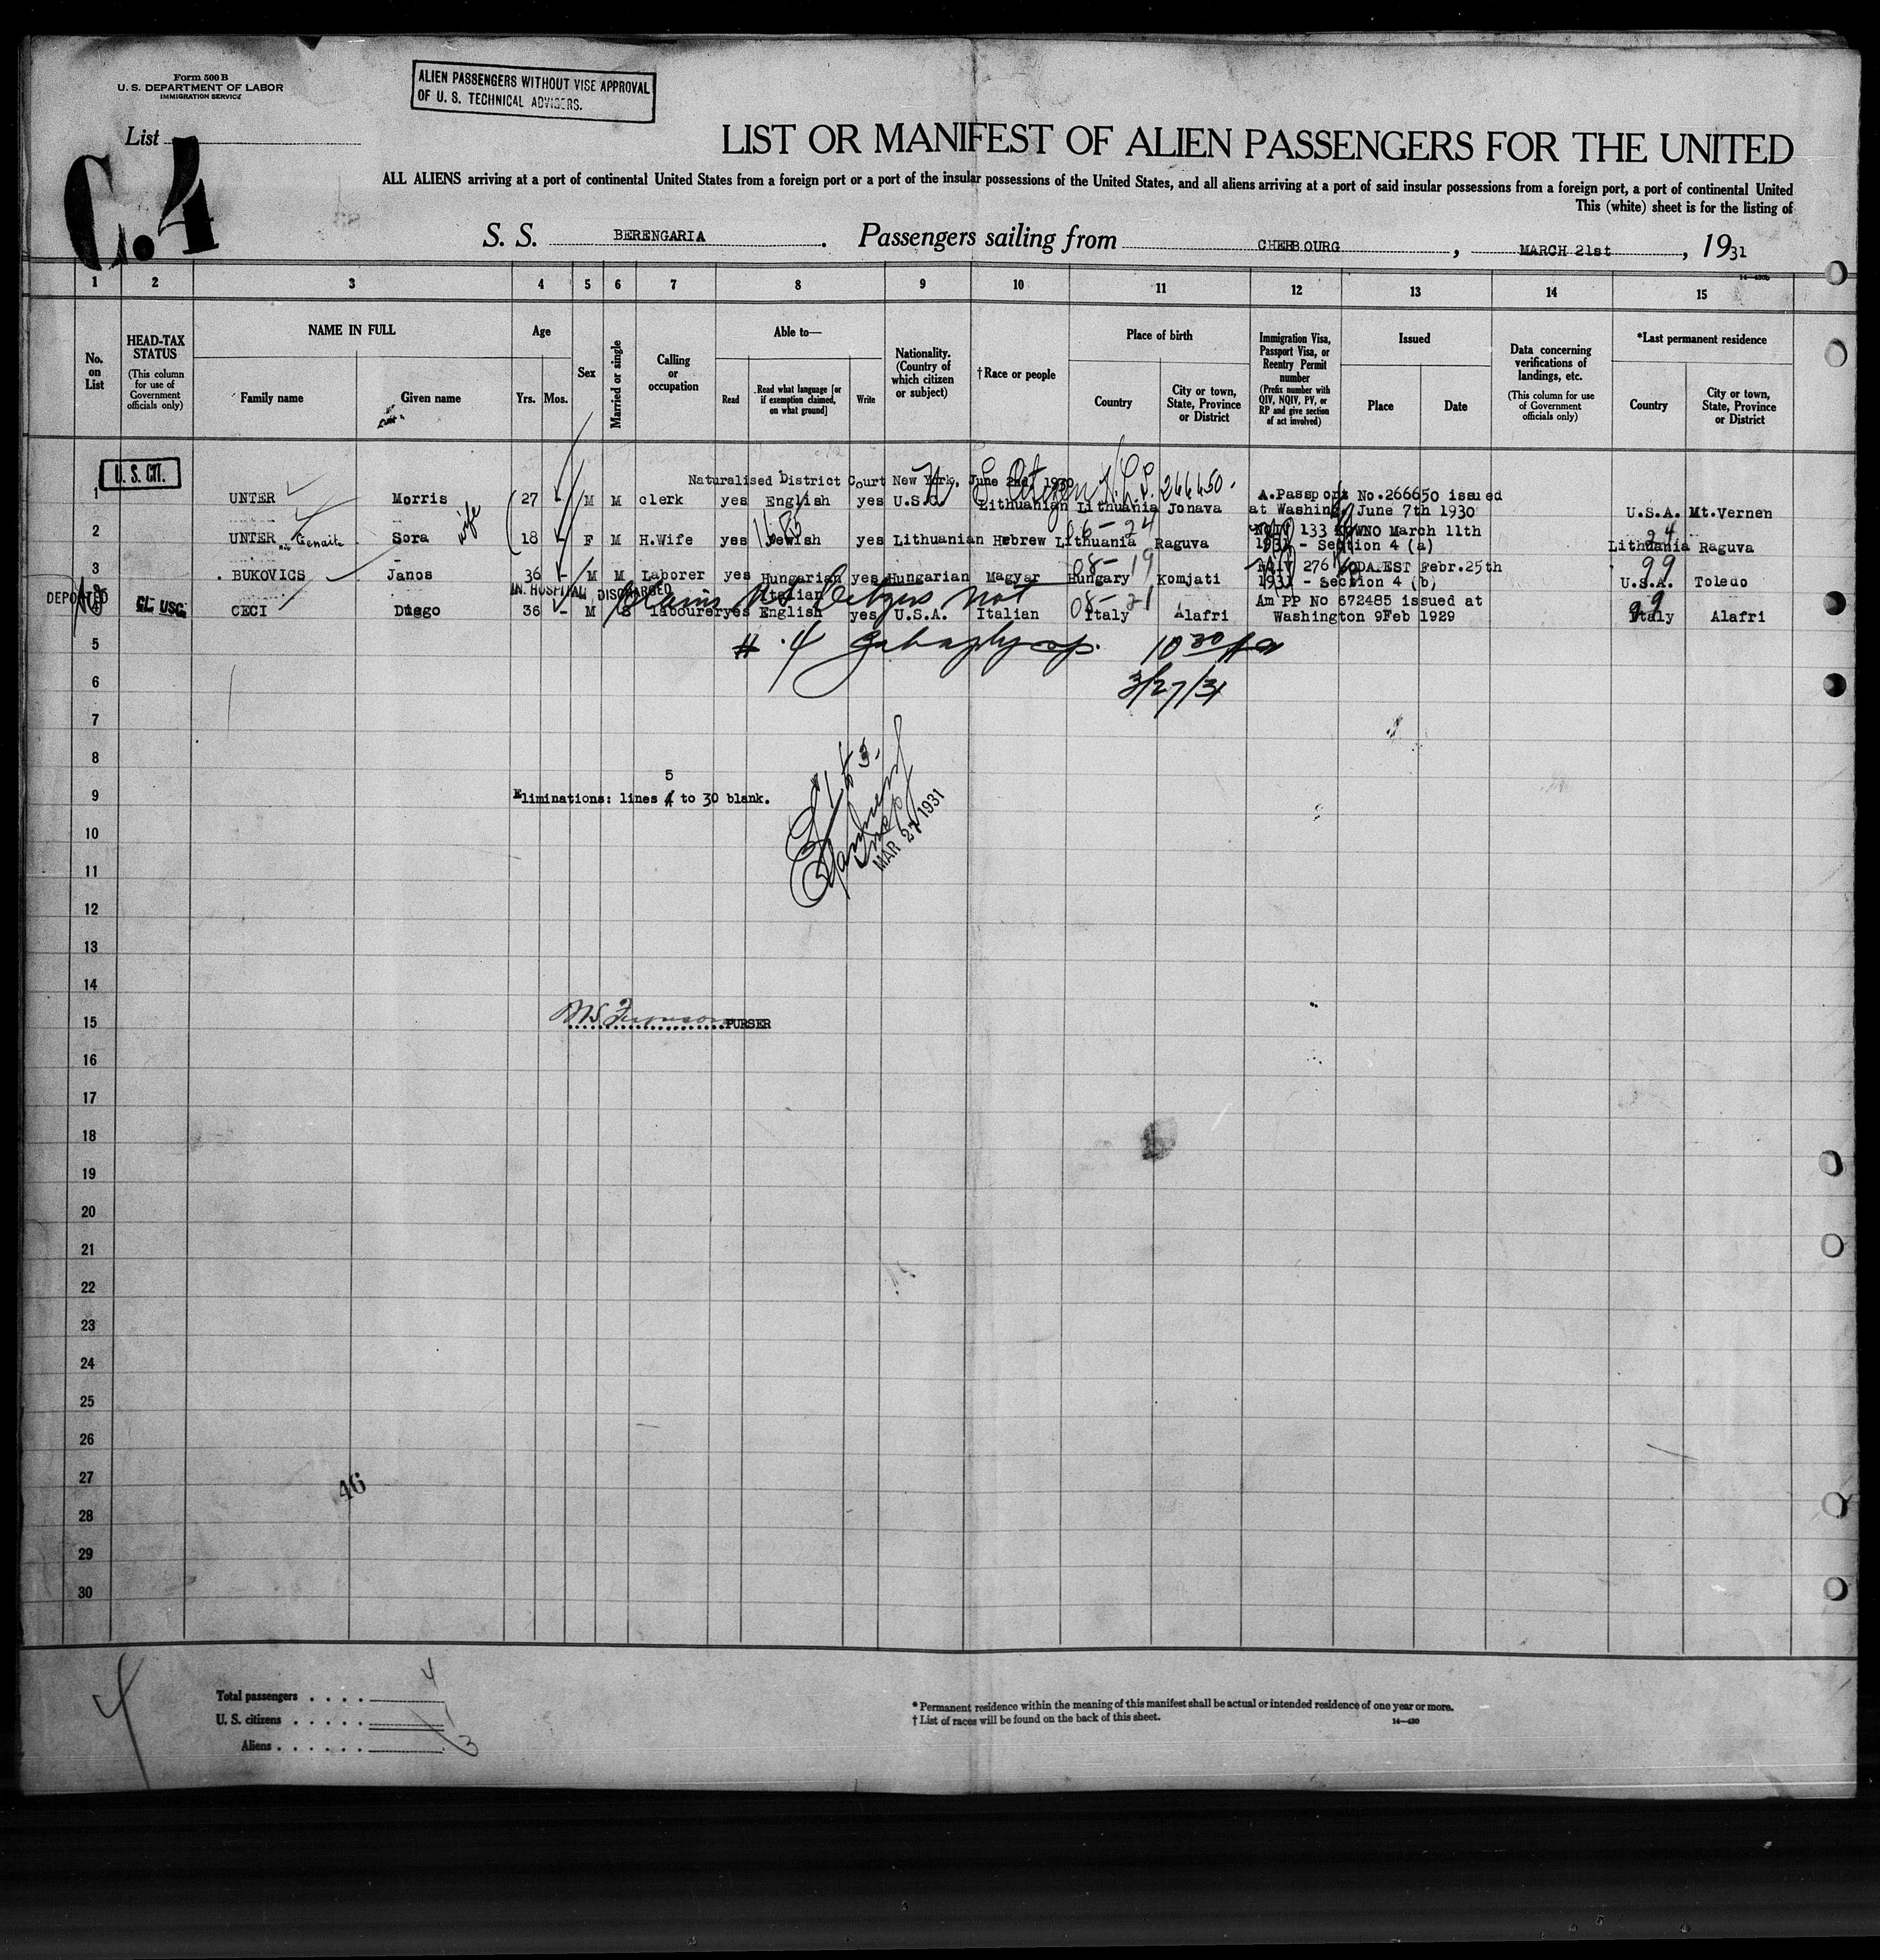 Form 500 B
U. S. DEPARTMENT OF LABOR
IMMIGRATION SERVICE
ALIEN PASSENGERS WITHOUT VISE APPROVAL
OF U. S. TECHNICAL ADVISERS.
List
C.4
LIST OR MANIFEST OF ALIEN PASSENGERS FOR THE UNITED
ALL ALIENS arriving at a port of continental United States from a foreign port or a port of the insular possessions of the United States, and all aliens arriving at a port of said insular possessions from a foreign port, a port of continental United
This (white) sheet is for the listing of
S. S. BERENGARIA. Passengers sailing from CHERBOURG, MARCH 21st, 1931
14—430b
1 2 3 4 5 6 7 8 9 10 11 12 13 14 15
No. on List
HEAD-TAX STATUS (This column for use of Government officials only)
NAME IN FULL
Family name
Given name
Age
Yrs. Mos.
Sex
Married or single
Calling or occupation
Able to—
Read
Read what language [or if exemption claimed, on what ground]
Write
Nationality. (Country of which citizen or subject)
†Race or people
Place of birth
Country
City or town, State, Province or District
Immigration Visa, Passport Visa, or Reentry Permit number (Prefix number with QIV, NQIV, PV, or RP and give section of act involved)
Issued
Place
Date
Data concerning verifications of landings, etc. (This column for use of Government officials only)
*Last permanent residence
Country
City or town, State, Province or District
U. S. CIT.
Naturalised District Court New York, June 2nd 1930
1 UNTER Morris 27 - M M clerk yes English yes U.S.A. Lithuanian Lithuania Jonava A.Passport No.266650 issued at Washing. June 7th 1930 U.S.A. Mt.Vernen
266650.
wife
06-24
24
2 UNTER Sora 18 - F M H.Wife yes Jewish yes Lithuanian Hebrew Lithuania Raguva NQIV 133 KOWNO March 11th 1931 - Section 4 (a) Lithuania Raguva
08-19
99
3 BUKOVICS Janos 36 - M M Laborer yes Hungarian yes Hungarian Magyar Hungary Komjati NQIV 276 BUDAPEST Febr.25th 1931 - Section 4 (b) U.S.A. Toledo
IN HOSPITAL DISCHARGED
DEPORTED
CL. USC.
08-21
99
4 CECI Diego 36 - M S labourer yes Italian English yes U.S.A. Italian Italy Alafri Am PP No 672485 issued at Washington 9Feb 1929 Italy Alafri
5
# 4
10 30
3/27/31
6
7
8
5
9 Eliminations: lines 4 to 30 blank.
MAR 27 1931
10
11
12
13
14
15 PURSER
16
17
18
19
20
21
22
23
24
25
26
27
46
28
29
30
4
Total passengers . . . . 4
U. S. citizens . . . . . 1
Aliens . . . . . . 3
* Permanent residence within the meaning of this manifest shall be actual or intended residence of one year or more.
† List of races will be found on the back of this sheet.
14—430